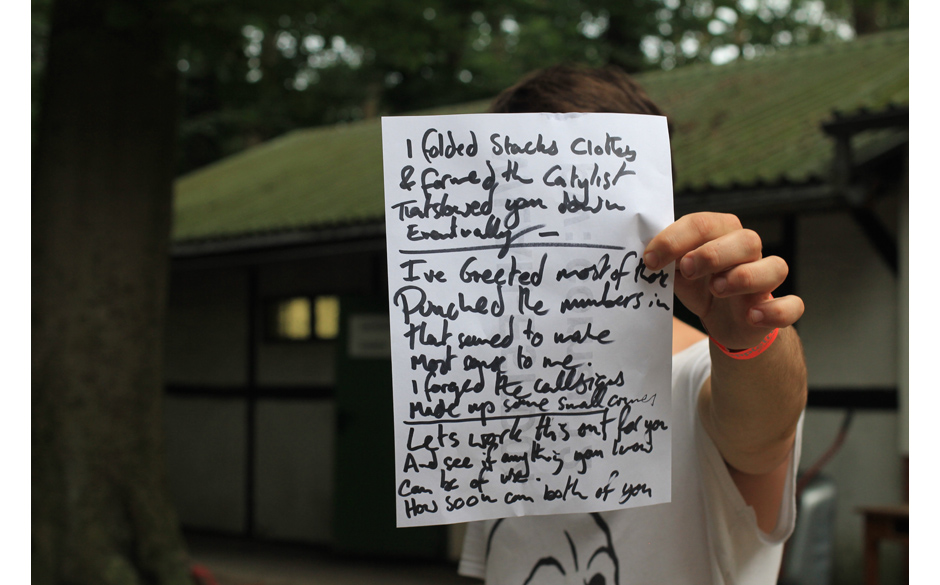 I folded Stacks Clothes
& formed the Catylist
That slowed you down
Eventually —
I've Greeted most of those
Punched the numbers in
that seemed to make
most sense to me.
I forged the callsigns
Made up some small crimes
Lets work this out for you
And see if anything you know
Can be of use.
How soon can both of you